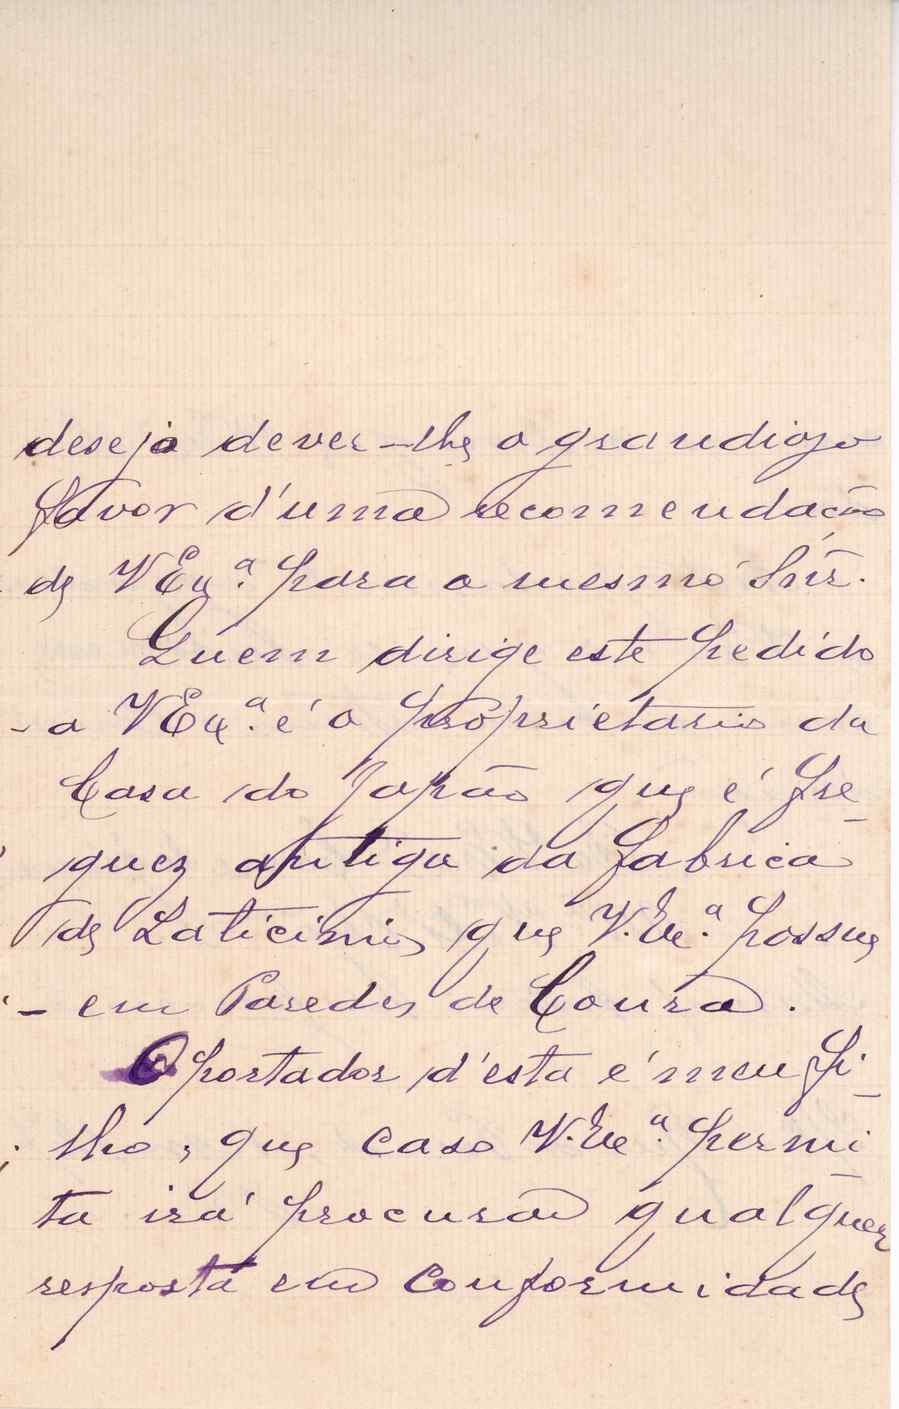 desejo dever-lhe o grandioso
favor d'uma recomendação
de V Exª. para o mesmo Snr.
Quem dirige este pedido
a V Exª. é o proprietario da
Casa do Japão que é fre-
guez antigo da fabrica
de Laticinios que V. Exª. possue
em Paredes de Coura.
O portador d'esta é meu fi-
lho, que caso V. Exª. permi-
ta irá procurar qualquer
resposta em conformidade